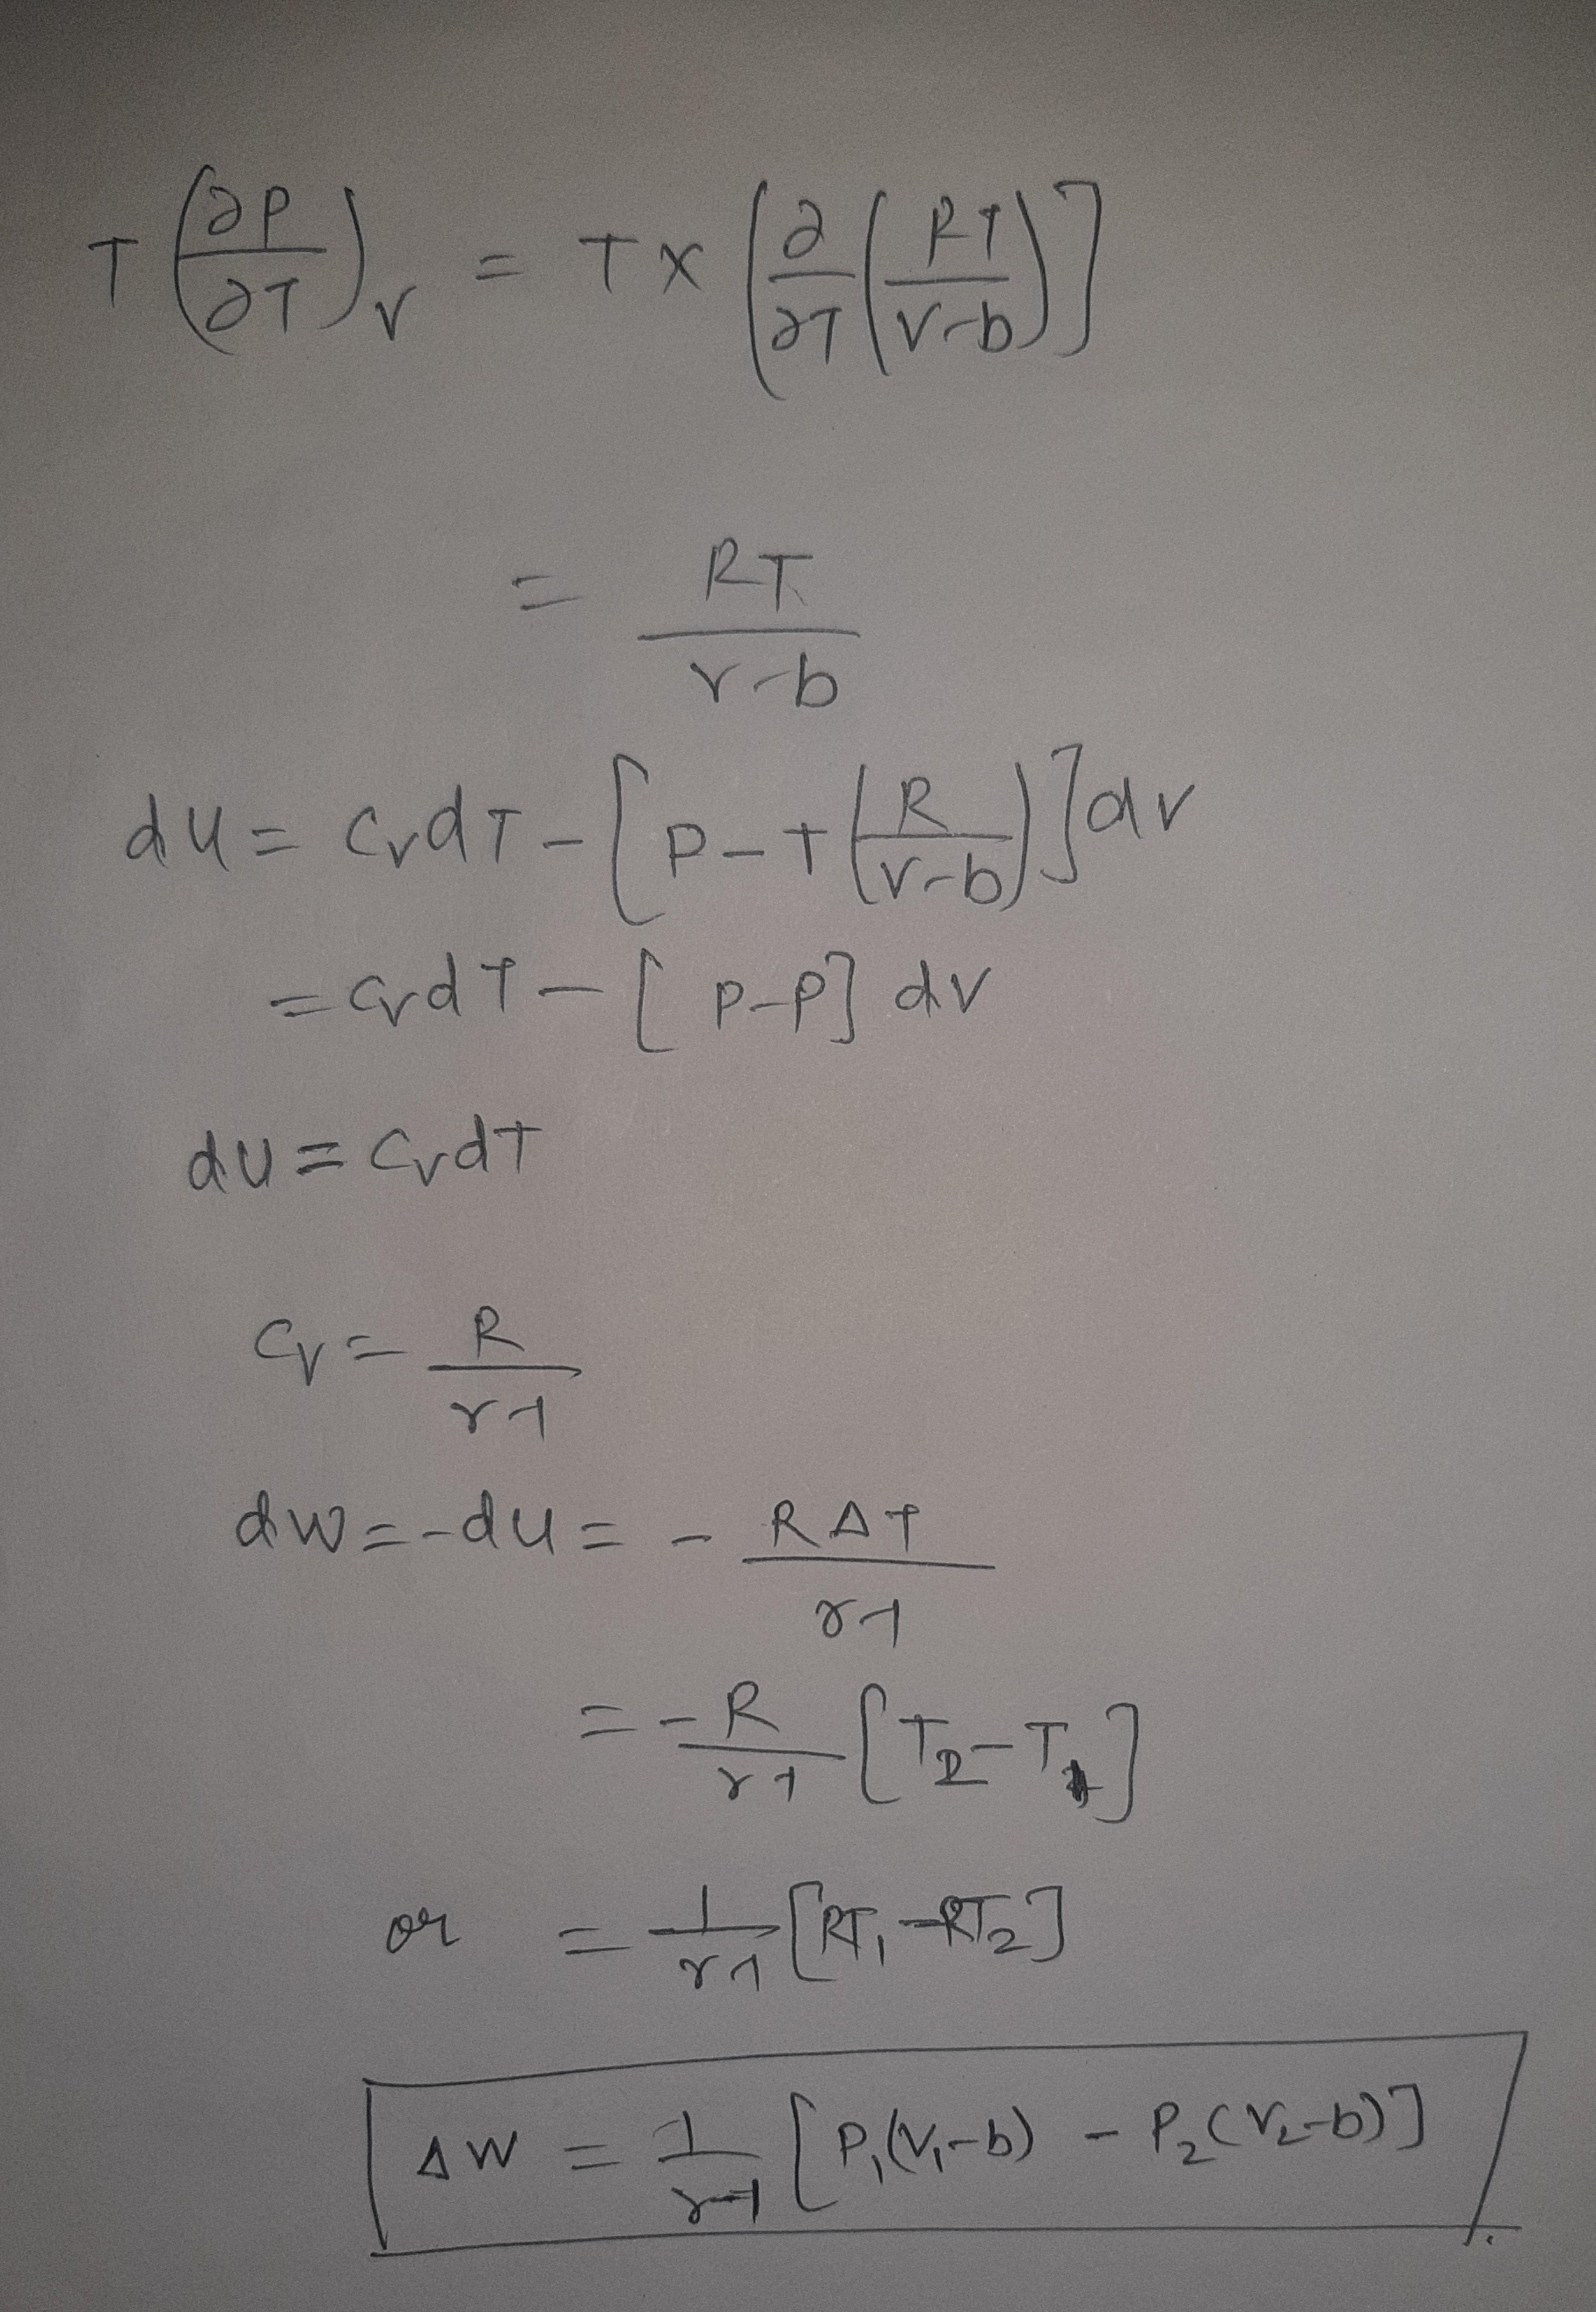 T(∂P/∂T)_V = T × [∂/∂T (RT/V-b)]
= RT/V-b
dU = C_V dT - [P - T(R/V-b)] dV
= C_V dT - [P-P] dV
dU = C_V dT
C_V = R/γ-1
dW = -dU = - RΔT/γ-1
= -R/γ-1 [T₂-T₁]
or = 1/γ-1 [RT₁ - RT₂]
ΔW = 1/γ-1 [P₁(V₁-b) - P₂(V₂-b)]